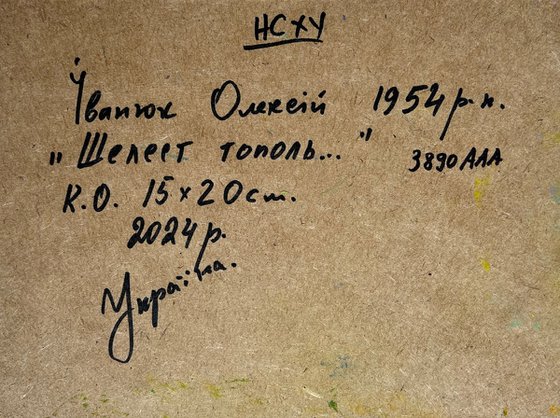 НСХУ
Іванюк Олексій 1954 р.н.
"Шелест тополь..." 3890 ААА
К.О. 15 × 20 cm.
2024 р.
Україна.